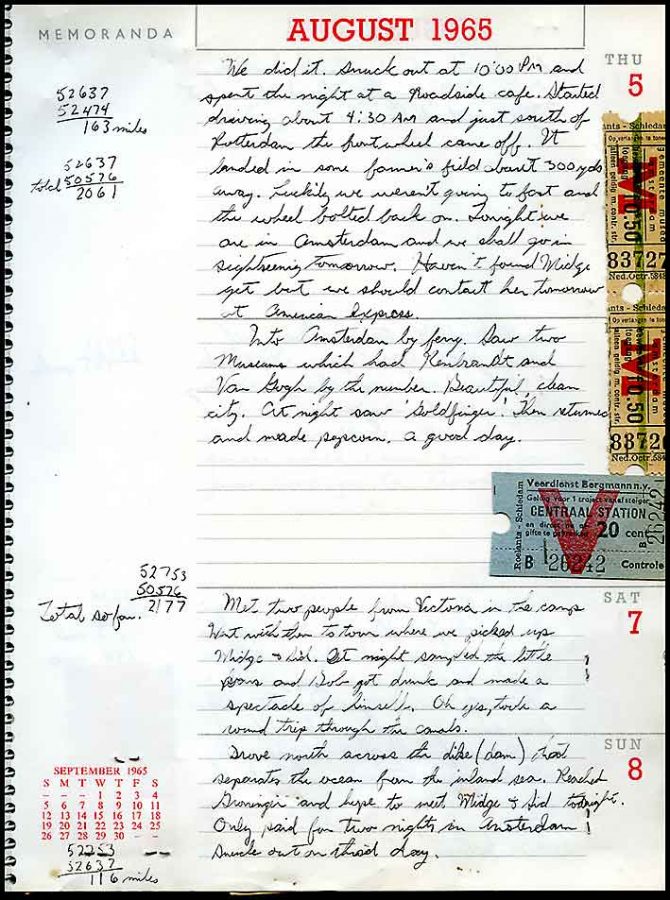 MEMORANDA
AUGUST 1965
52637
52474
163 miles
52637
total 50576
2061
THU
5
We did it. Snuck out at 10:00 PM and
spent the night at a Roadside cafe. Started
driving about 4:30 AM and just south of
Rotterdam the front wheel came off. It
landed in some farmer's field about 300 yds
away. Luckily we weren't going to fast and
the wheel bolted back on. Tonight we
are in Amsterdam and we shall go in
sightseeing tomorrow. Haven't found Midge
yet but we should contact her tomorrow
at American Express.
Into Amsterdam by ferry. Saw two
Museums which had Rembrandt and
Van Gogh by the number. Beautiful, clean
city. At night saw 'Goldfinger'. Then returned
and made popcorn. A good day.
0.50
83727
Ned.Octr.
0.50
8372
Ned.Octr.
Roelants - Schiedam
Veerdienst Bergmann n.v.
Geldig voor 1 traject
CENTRAAL STATION
20 cent
B 26242
Controle
B 26242
52753
50576
Total so far. 2177
SAT
7
Met two people from Victoria in the camp
Went with them to town where we picked up
Midge & Sid. At night sampled the little
and Bob got drunk and made a
spectacle of himself. Oh yes, took a
round trip through the canals.
SUN
8
Drove north across the dike (dam) that
separates the ocean from the inland sea. Reached
Groningen and hope to meet Midge & Sid tonight.
Only paid for two nights in Amsterdam
Snuck out on third day.
SEPTEMBER 1965
S M T W T F S
- - - 1 2 3 4
5 6 7 8 9 10 11
12 13 14 15 16 17 18
19 20 21 22 23 24 25
26 27 28 29 30 - -
52753
52637
116 miles